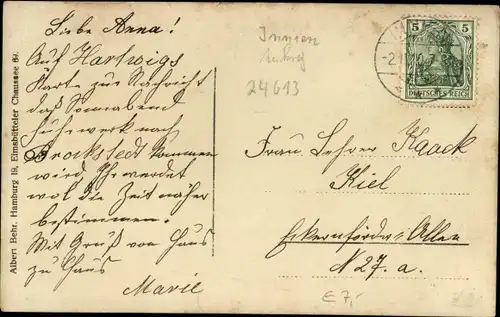 Liebe Anna!
Auf Hartwigs
Karte zur Nachricht
daß Sonnabend
Fuhrwerk nach
Brokstedt kommen
wird, Ihr werdet
wol die Zeit näher
bestimmen.
Mit Gruß von Haus
zu Haus
Marie
Albert Behr, Hamburg 19, Eimsbütteler Chaussee
Innien
24613
5 5
DEUTSCHES REICH
Frau Lehrer Kaack
Kiel
Eckernförder Allee
N 27. a.
€ 7,-